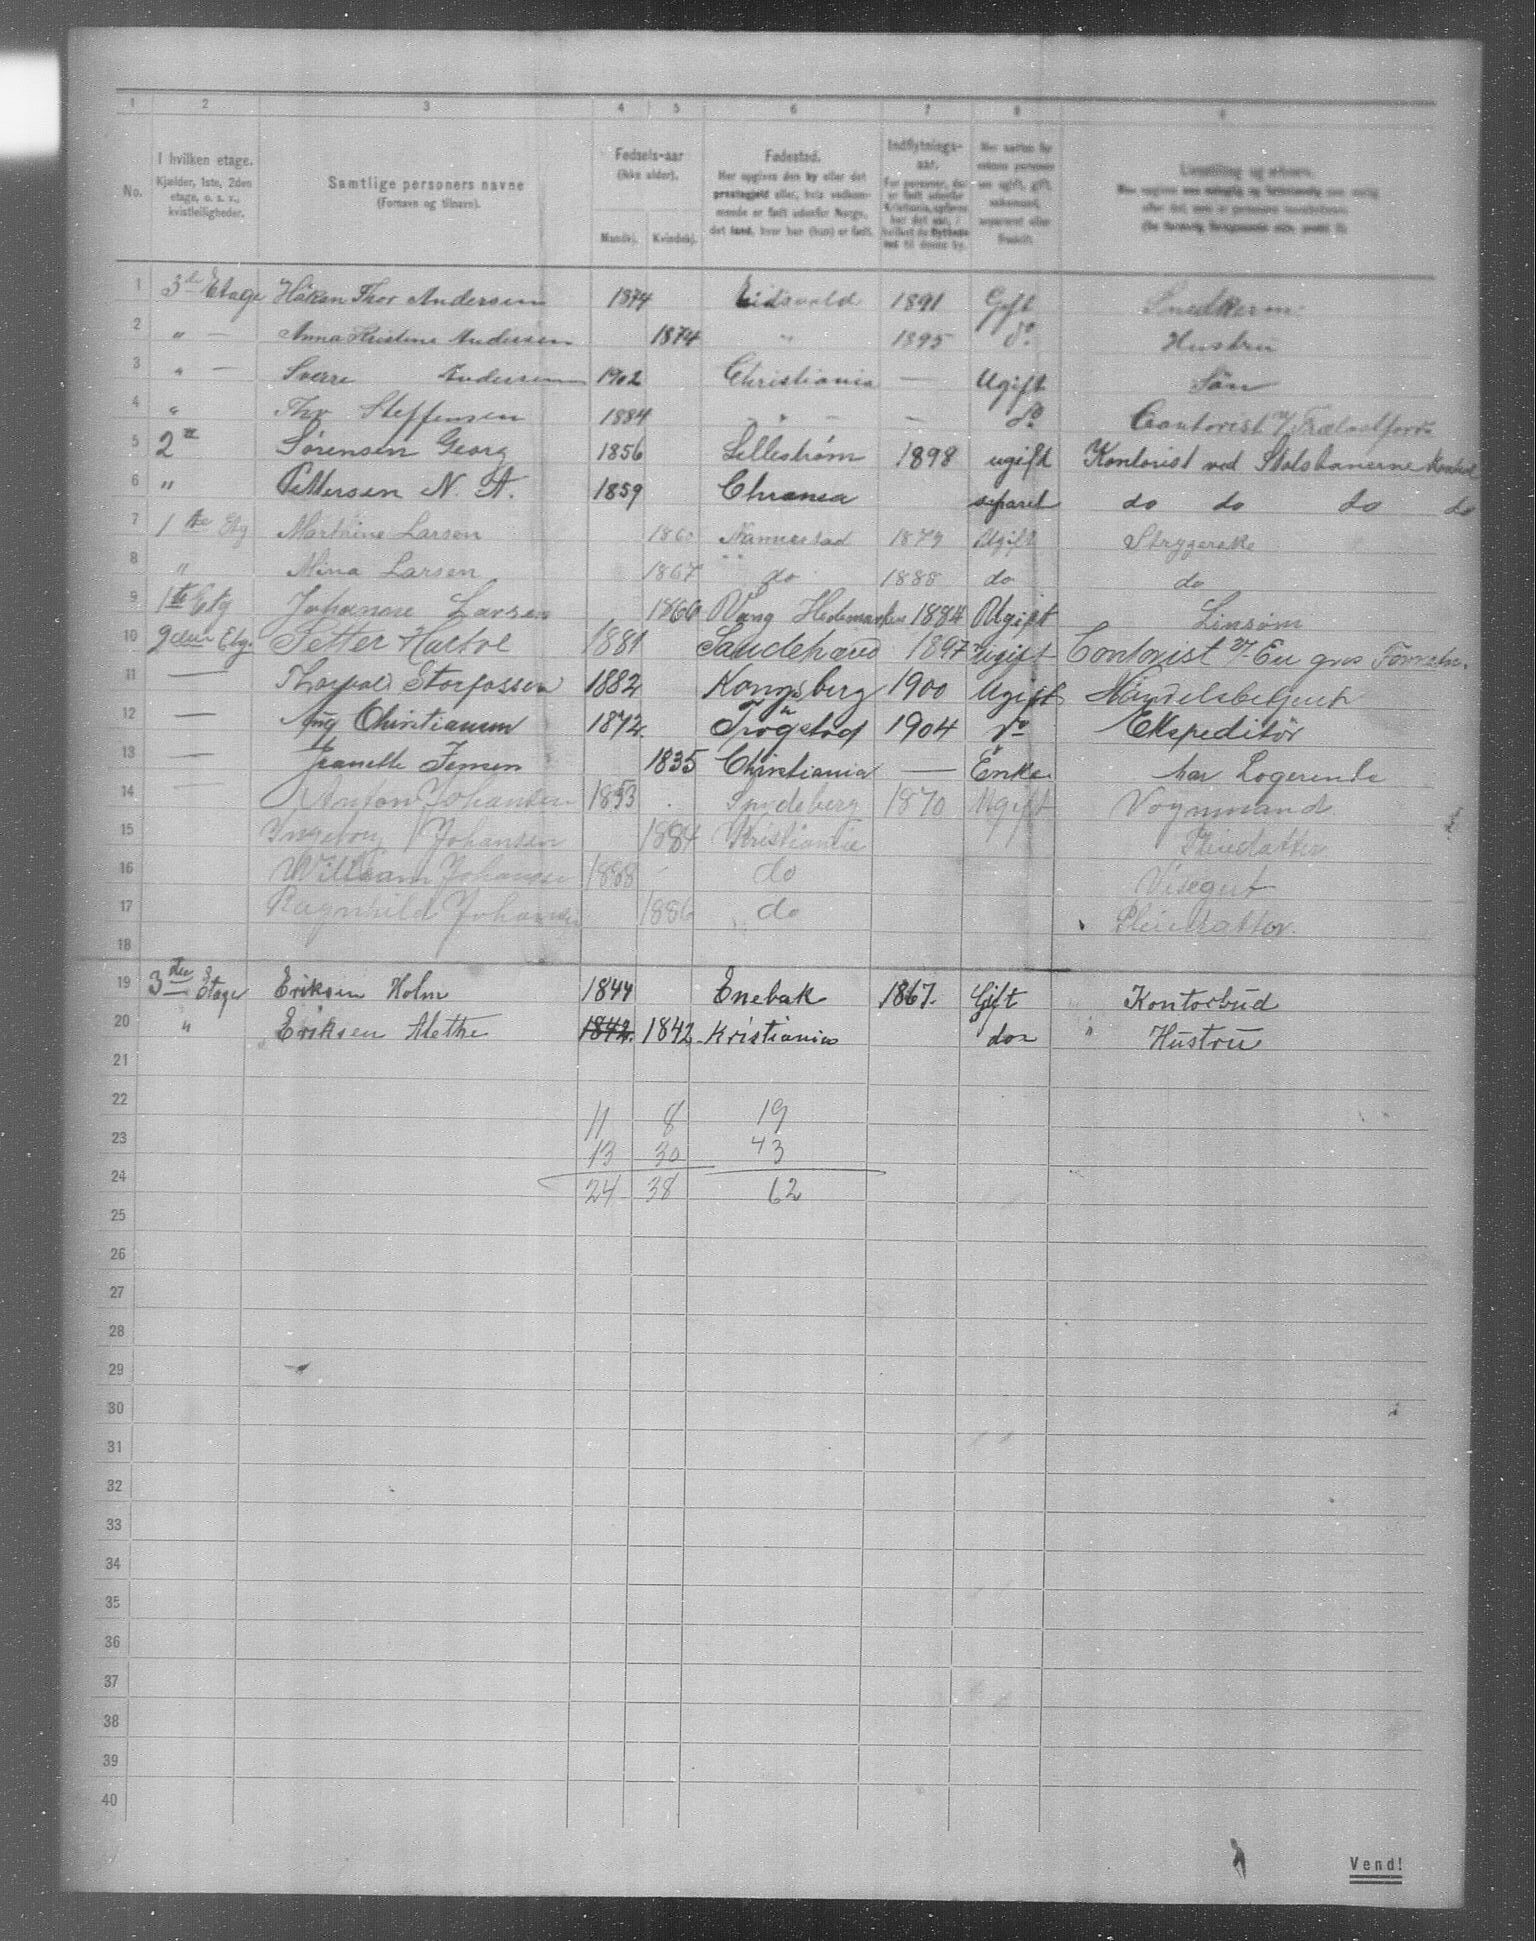 1 2 3 4 5 6 7 8
No.
I hvilken etage.
Kjælder, 1ste, 2den
etage, o. s. v.,
kvistleiligheder.
Samtlige personers navne
(Fornavn og tilnavn).
Fødsels-aar
(ikke alder).
Mandkj. Kvindekj.
Fødested.
Her opgives den by eller det
præstegjeld eller, hvis vedkom-
mende er født udenfor Norge,
det land, hvor han (hun) er født.
Indflytnings-
aar.
For personer, der
er født udenfor
Kristiania, opføres
her det aar, i
hvilket de flyttede
ind til denne by.
Livsstilling og erhverv.
1 3die Etage Håkon Thor Andersen 1874 Eidsvold 1891 Gift Snedkerm
2 " — Anna Kristine Andersen 1874 " 1895 do Hustru
3 " — Sverre Andersen 1902 Christiania — Ugift Sön
4 " Thv Steffensen 1884 - " - — do Contorist v/ Trælastforr
5 2den Sørensen Georg 1856 Lillestrøm 1898 ugift Kontorist ved Statsbanerne Kontrol
6 " Pettersen N. A. 1859 Chrania separet do do do do
7 1ste Etg Marthine Larsen 1860 Nannestad 1879 Ugift Strygerske
8 " Mina Larsen 1867 do 1888 do do
9 1ste Etg Johanne Larsen 1866 Vang Hedemarken 1884 Ugift Linsøm
10 2den Etg. Petter Hartve 1881 Sandehered 1897 Ugift Contorist v/ En gros Forretn.
11 — Thorvald Storfossen 1882 Kongsberg 1900 Ugift Handelsbetjent
12 — Aug Christiansen 1872. Trögstad 1904 do Ekspeditör
13 — Jeanette Jensen 1835 Christiania — Enke har Logerende
14 — Anton Johansen 1853 Spydeberg 1870 Ugift Vognmand
15 Ingeborg Johansen 1884 Kristiania Pleiedatter
16 William Johansen 1888 do Visegut
17 Ragnhild Johansen 1886 do Pleiedatter
18
19 3die Etage Eriksen Holm 1844 Enebak 1867. Gift Kontorbud
20 " Eriksen Alethe 1842. 1842. Kristiania do " Hustru
21
22 11 8 19
23 13 30 43
24 24 38 62
25
26
27
28
29
30
31
32
33
34
35
36
37
38
39
40
Vend!